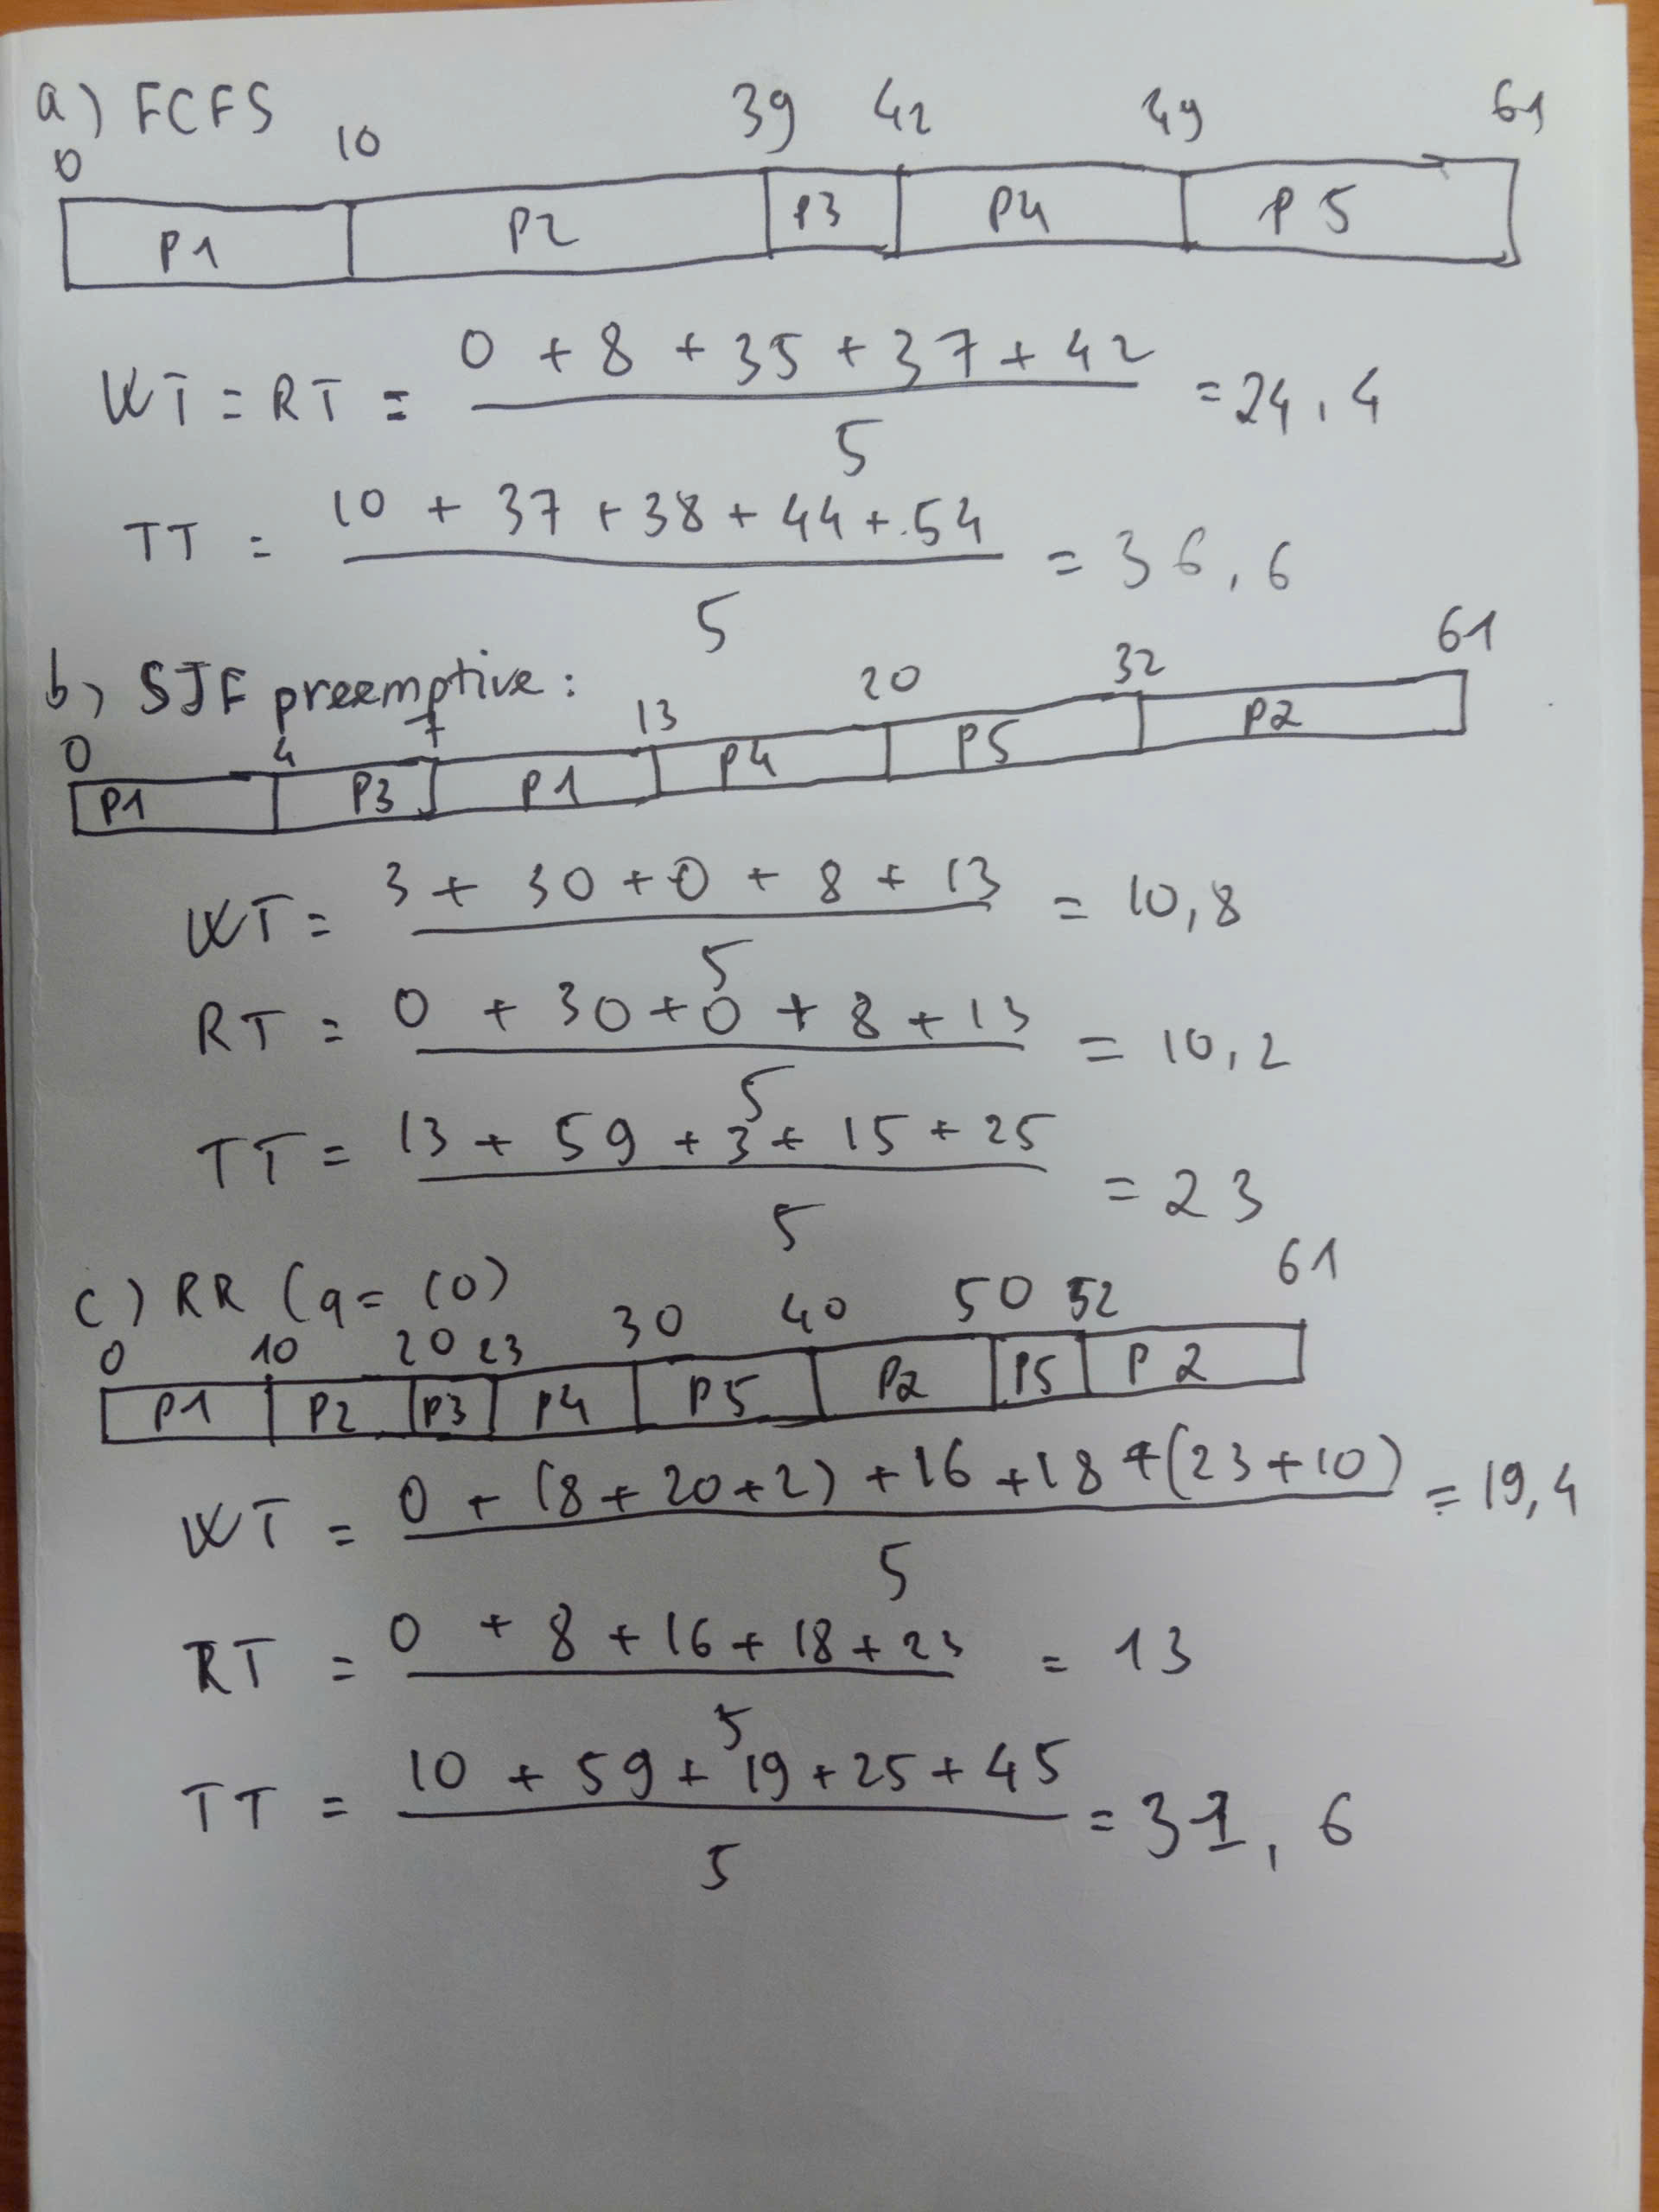 a) FCFS
0 10 39 42 49 61
P1 P2 P3 P4 P5
WT = RT = 0 + 8 + 35 + 37 + 42 = 24,4
5
TT = 10 + 37 + 38 + 44 + 54 = 36,6
5
b, SJF preemptive:
0 4 7 13 20 32 61
P1 P3 P1 P4 P5 P2
WT = 3 + 30 + 0 + 8 + 13 = 10,8
5
RT = 0 + 30 + 0 + 8 + 13 = 10,2
5
TT = 13 + 59 + 3 + 15 + 25 = 23
5
c) RR (q = 10)
0 10 20 23 30 40 50 52 61
P1 P2 P3 P4 P5 P2 P5 P2
WT = 0 + (8 + 20 + 2) + 16 + 18 + (23 + 10) = 19,4
5
RT = 0 + 8 + 16 + 18 + 23 = 13
5
TT = 10 + 59 + 19 + 25 + 45 = 31,6
5